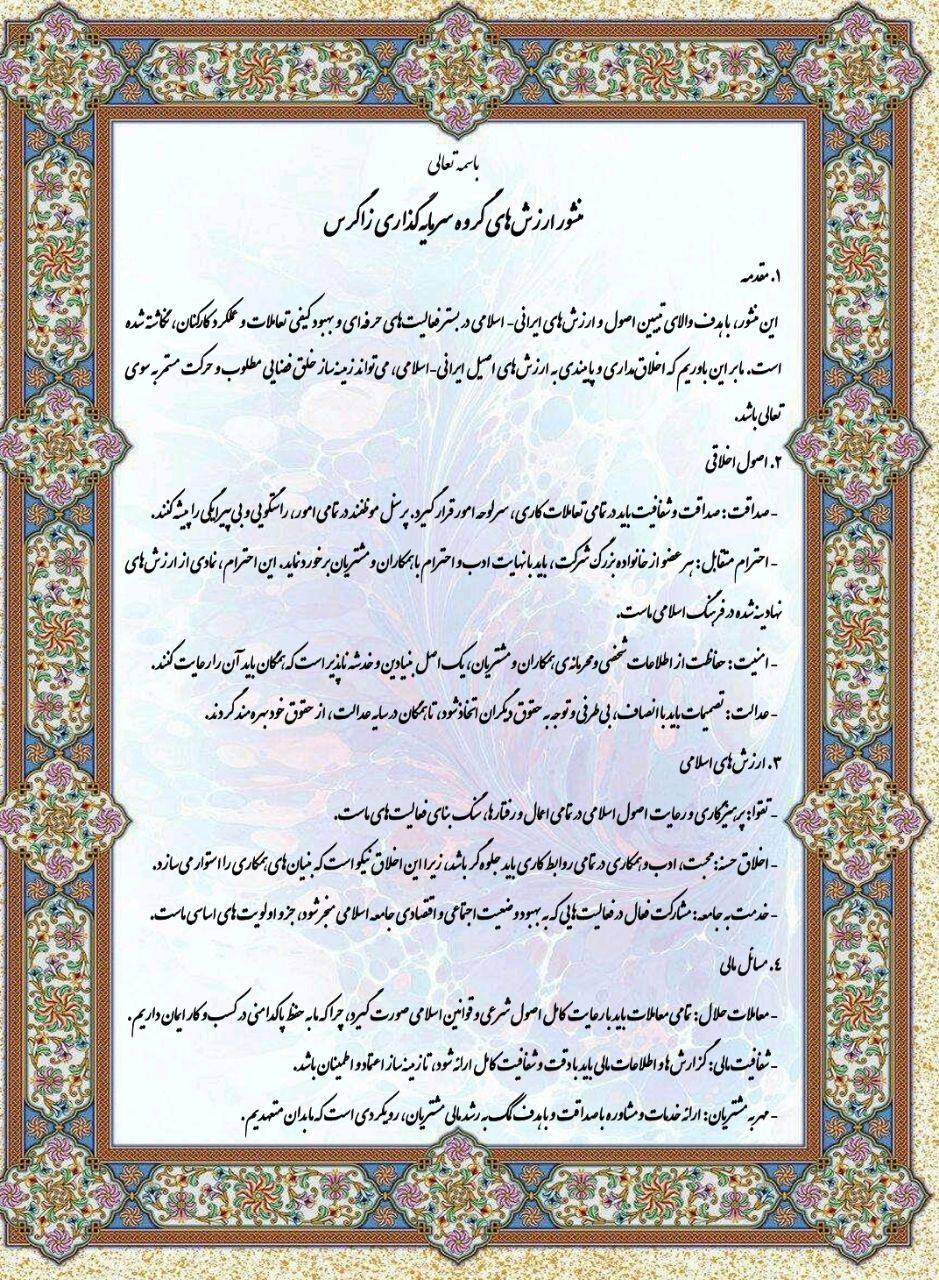 باسمه تعالی
منشور ارزش‌های گروه سرمایه‌گذاری زاگرس
۱. مقدمه
این منشور، با هدف والای تبیین اصول و ارزش‌های ایرانی- اسلامی در بستر فعالیت‌های حرفه‌ای و بهبود کیفی تعاملات و عملکرد کارکنان، نگاشته شده
است. ما بر این باوریم که اخلاق‌مداری و پایبندی به ارزش‌های اصیل ایرانی-اسلامی، می‌تواند زمینه‌ساز خلق فضایی مطلوب و حرکت مستمر به سوی
تعالی باشد.
۲. اصول اخلاقی
- صداقت: صداقت و شفافیت باید در تمامی تعاملات کاری، سرلوحه امور قرار گیرد. پرسنل موظفند در تمامی امور، راستگویی و بی‌پیرایگی را پیشه کنند.
- احترام متقابل: هر عضو از خانواده بزرگ شرکت، باید با نهایت ادب و احترام با همکاران و مشتریان برخورد نماید. این احترام، نمادی از ارزش‌های
نهادینه شده در فرهنگ اسلامی ماست.
- امنیت: حفاظت از اطلاعات شخصی و محرمانه‌ی همکاران و مشتریان، یک اصل بنیادین و خدشه ناپذیر است که همگان باید آن را رعایت کنند.
- عدالت: تصمیمات باید با انصاف، بی‌طرفی و توجه به حقوق دیگران اتخاذ شود، تا همگان در سایه عدالت، از حقوق خود بهره‌مند گردند.
۳. ارزش‌های اسلامی
- تقوا: پرهیزکاری و رعایت اصول اسلامی در تمامی اعمال و رفتارها، سنگ بنای فعالیت‌های ماست.
- اخلاق حسنه: محبت، ادب و همکاری در تمامی روابط کاری باید جلوه‌گر باشد، زیرا این اخلاق نیکو است که بنیان‌های همکاری را استوار می‌سازد.
- خدمت به جامعه: مشارکت فعال در فعالیت‌هایی که به بهبود وضعیت اجتماعی و اقتصادی جامعه اسلامی منجر شود، جزو اولویت‌های اساسی ماست.
۴. مسائل مالی
- معاملات حلال: تمامی معاملات باید با رعایت کامل اصول شرعی و قوانین اسلامی صورت گیرد، چرا که ما به حفظ پاکدامنی در کسب و کار ایمان داریم.
- شفافیت مالی: گزارش‌ها و اطلاعات مالی باید با دقت و شفافیت کامل ارائه شود، تا زمینه‌ساز اعتماد و اطمینان باشد.
- مهر به مشتریان: ارائه خدمات و مشاوره با صداقت و با هدف کمک به رشد مالی مشتریان، رویکردی است که ما بدان متعهدیم.